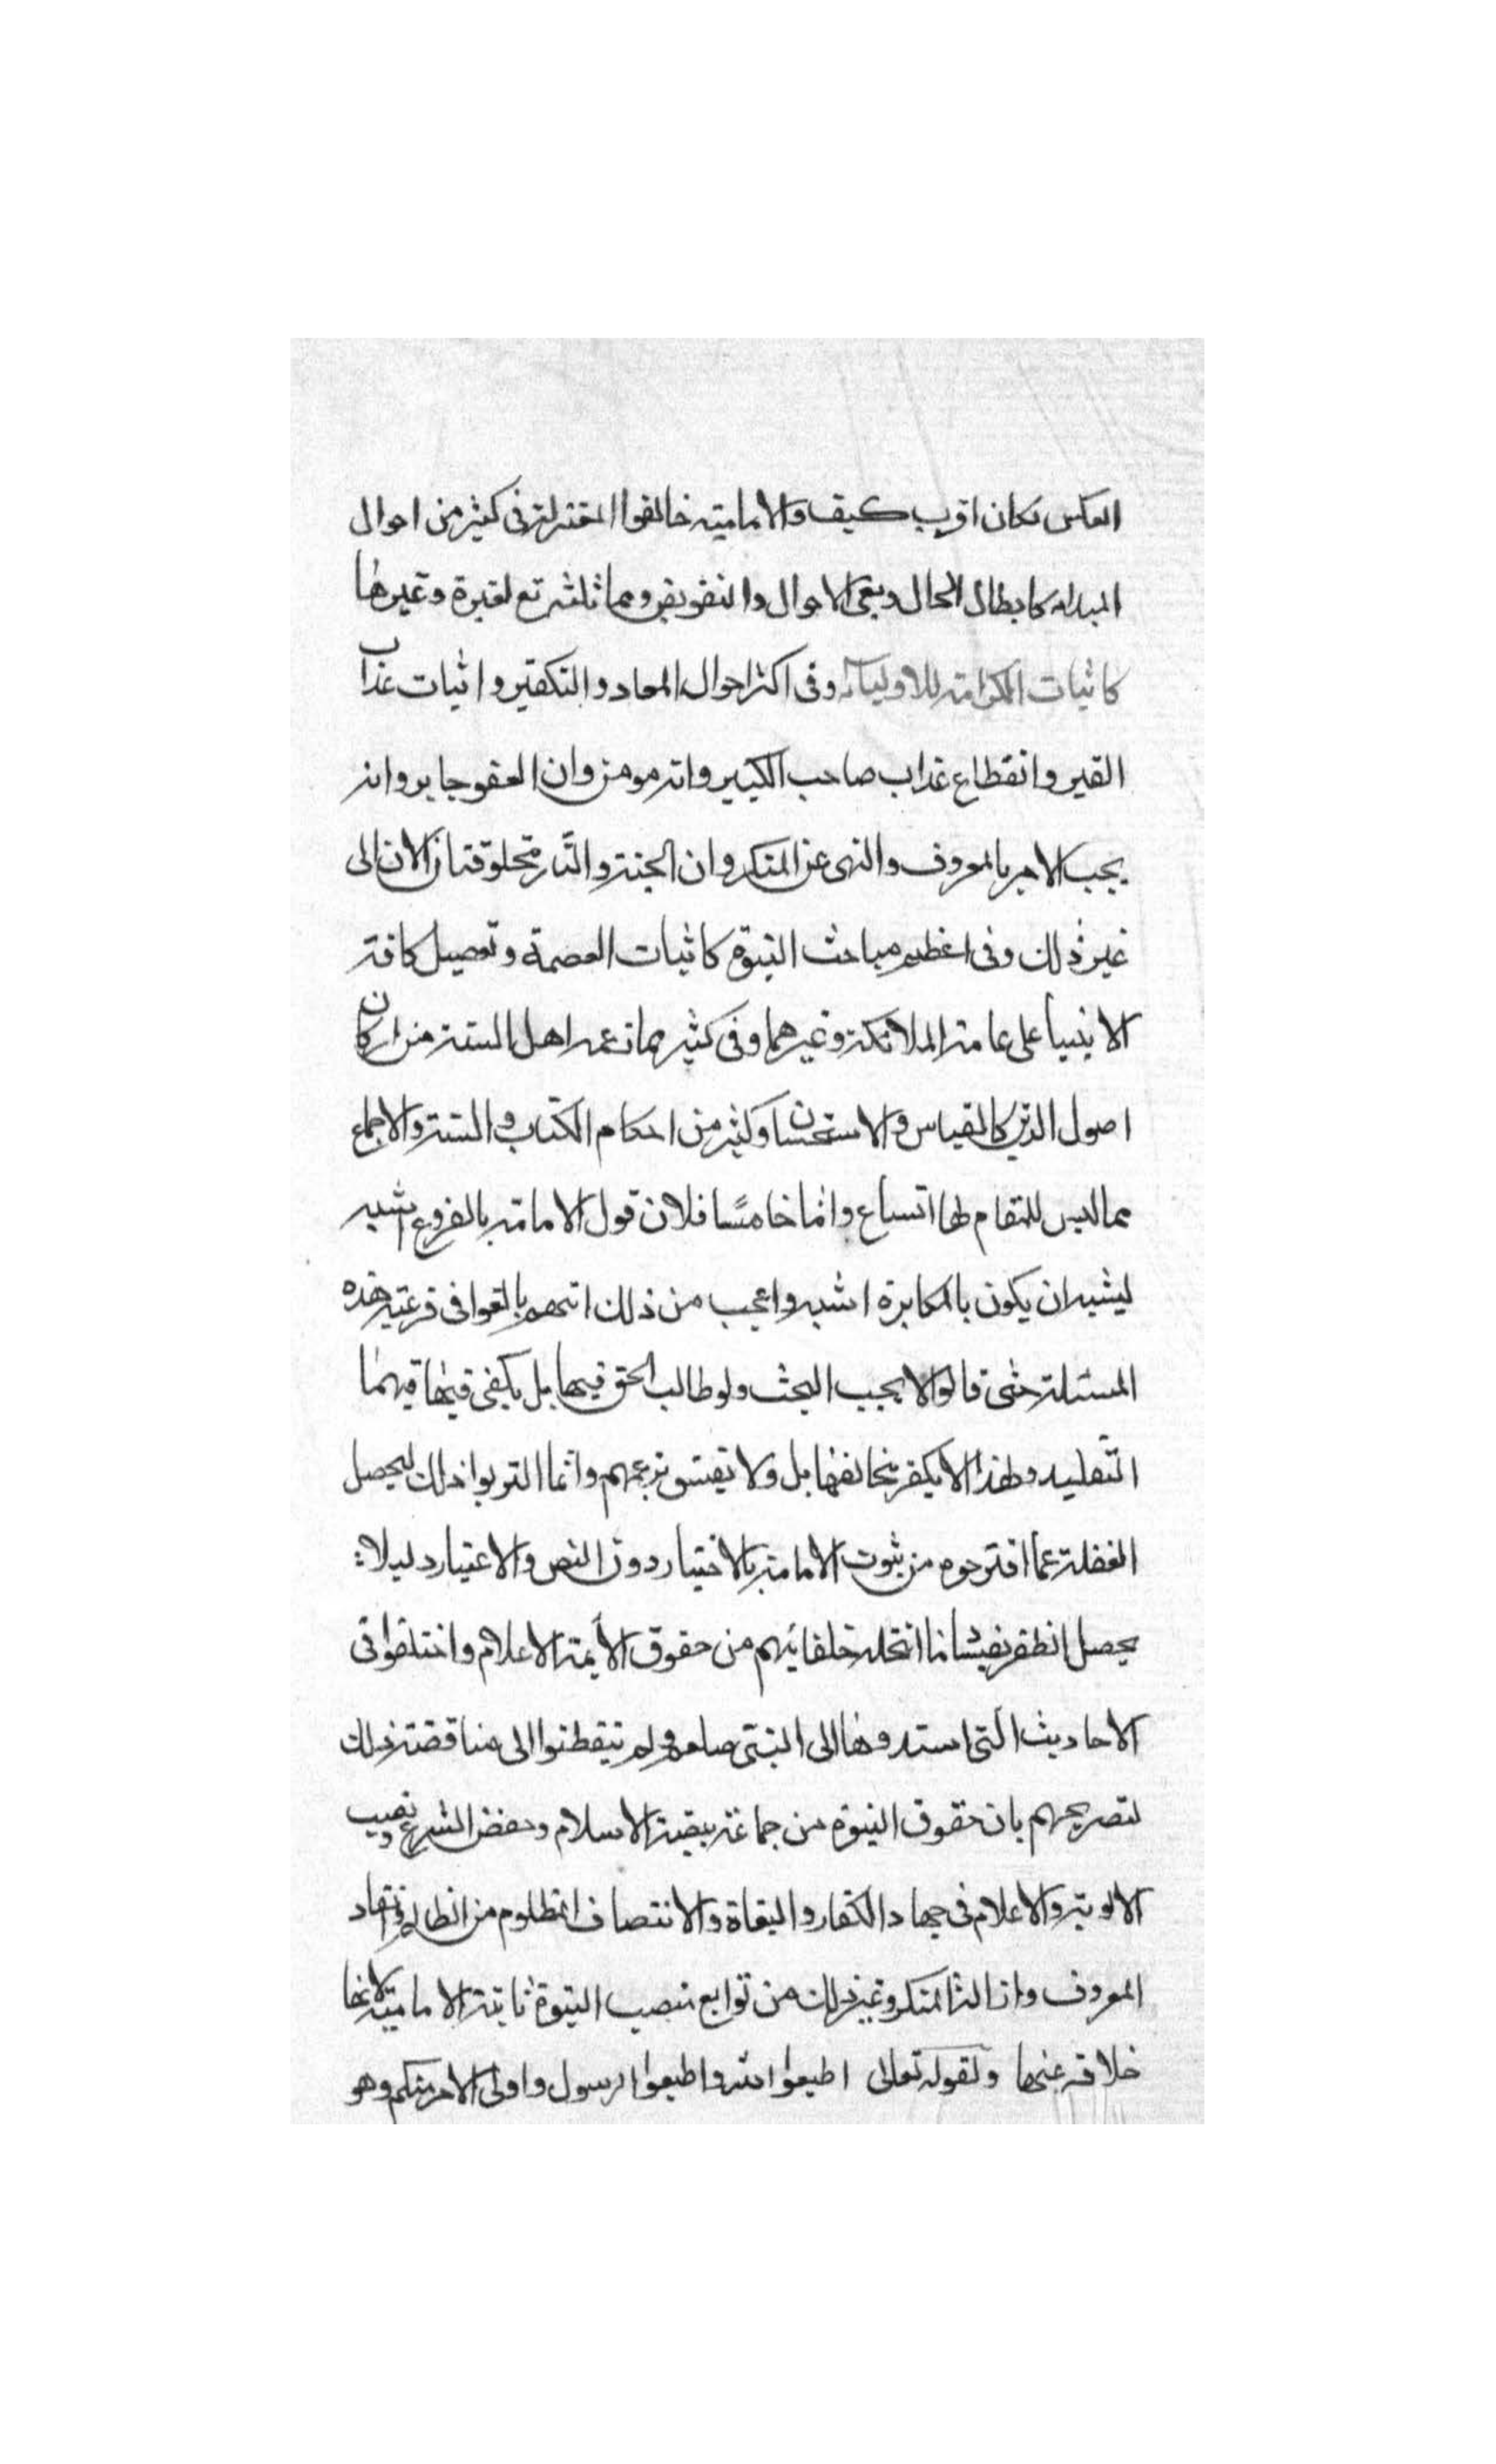 العكس لكان اقرب كيف والامامية خالفوا المعتزلة فى كثير من احوال
المبداء كابطال الحال وبقى الاحوال والتفويض ومماثلته تع لغيره وغيرها
كاثبات الكرامة للاولياء وفى اكثر احوال المعاد والتكفير واثبات عذاب
القبر وانقطاع عذاب صاحب الكبير وانه مومن وان العفو جايز وانه
يجب الامر بالمعروف والنهى عن المنكر وان الجنة والنار مخلوقتان الان الى
غير ذلك وفى اعظم مباحث النبوة كاثبات العصمة وتفصيل كافة
الانبياء على عامة الملائكة وغيرهما وفى كثير مما زعمه اهل السنة من اركان
اصول الدين كالقياس والاستحسان وكثير من احكام الكتاب والسنة والاجماع
مما ليس للمقام لها اتساع واما خامسًا فلان قول الامامة بالفروع اشبه
ليشبه ان يكون بالمكابرة اشبه واعجب من ذلك انهم بالغوا فى فرعية هذه
المسئلة حتى قالوا لا يجب البحث ولو طالب الحق فيها بل يكفى فيها
التقليد ولهذا لا يكفر مخالفها بل ولا يفسق بزعمهم وانما التزموا ذلك ليحصل
الغفلة عما اقترحوه من ثبوت الامامة بالاختيار دون النص والاعتبار دليلا
يحصل الظفر انتحله خلفائهم من حقوق الأيمة الاعلام واختلفوا فى
الاحاديث التى اسندوها الى النبى صلعم ولم يتفطنوا الى مناقضة ذلك
لتصريحهم بان حقوق النبوة من حماية بيضة الاسلام وحفظ الشرع ونصب
الالوية والاعلام فى جهاد الكفار والبغاة والانتصاف للمظلوم من الظالم وانفاد
المعروف وازالة المنكر وغير ذلك من توابع منصب النبوة ثابتة الامامية لانها
خلافة عنها ولقوله تعالى اطيعوا الله واطيعوا الرسول واولى الامر منكم وهو